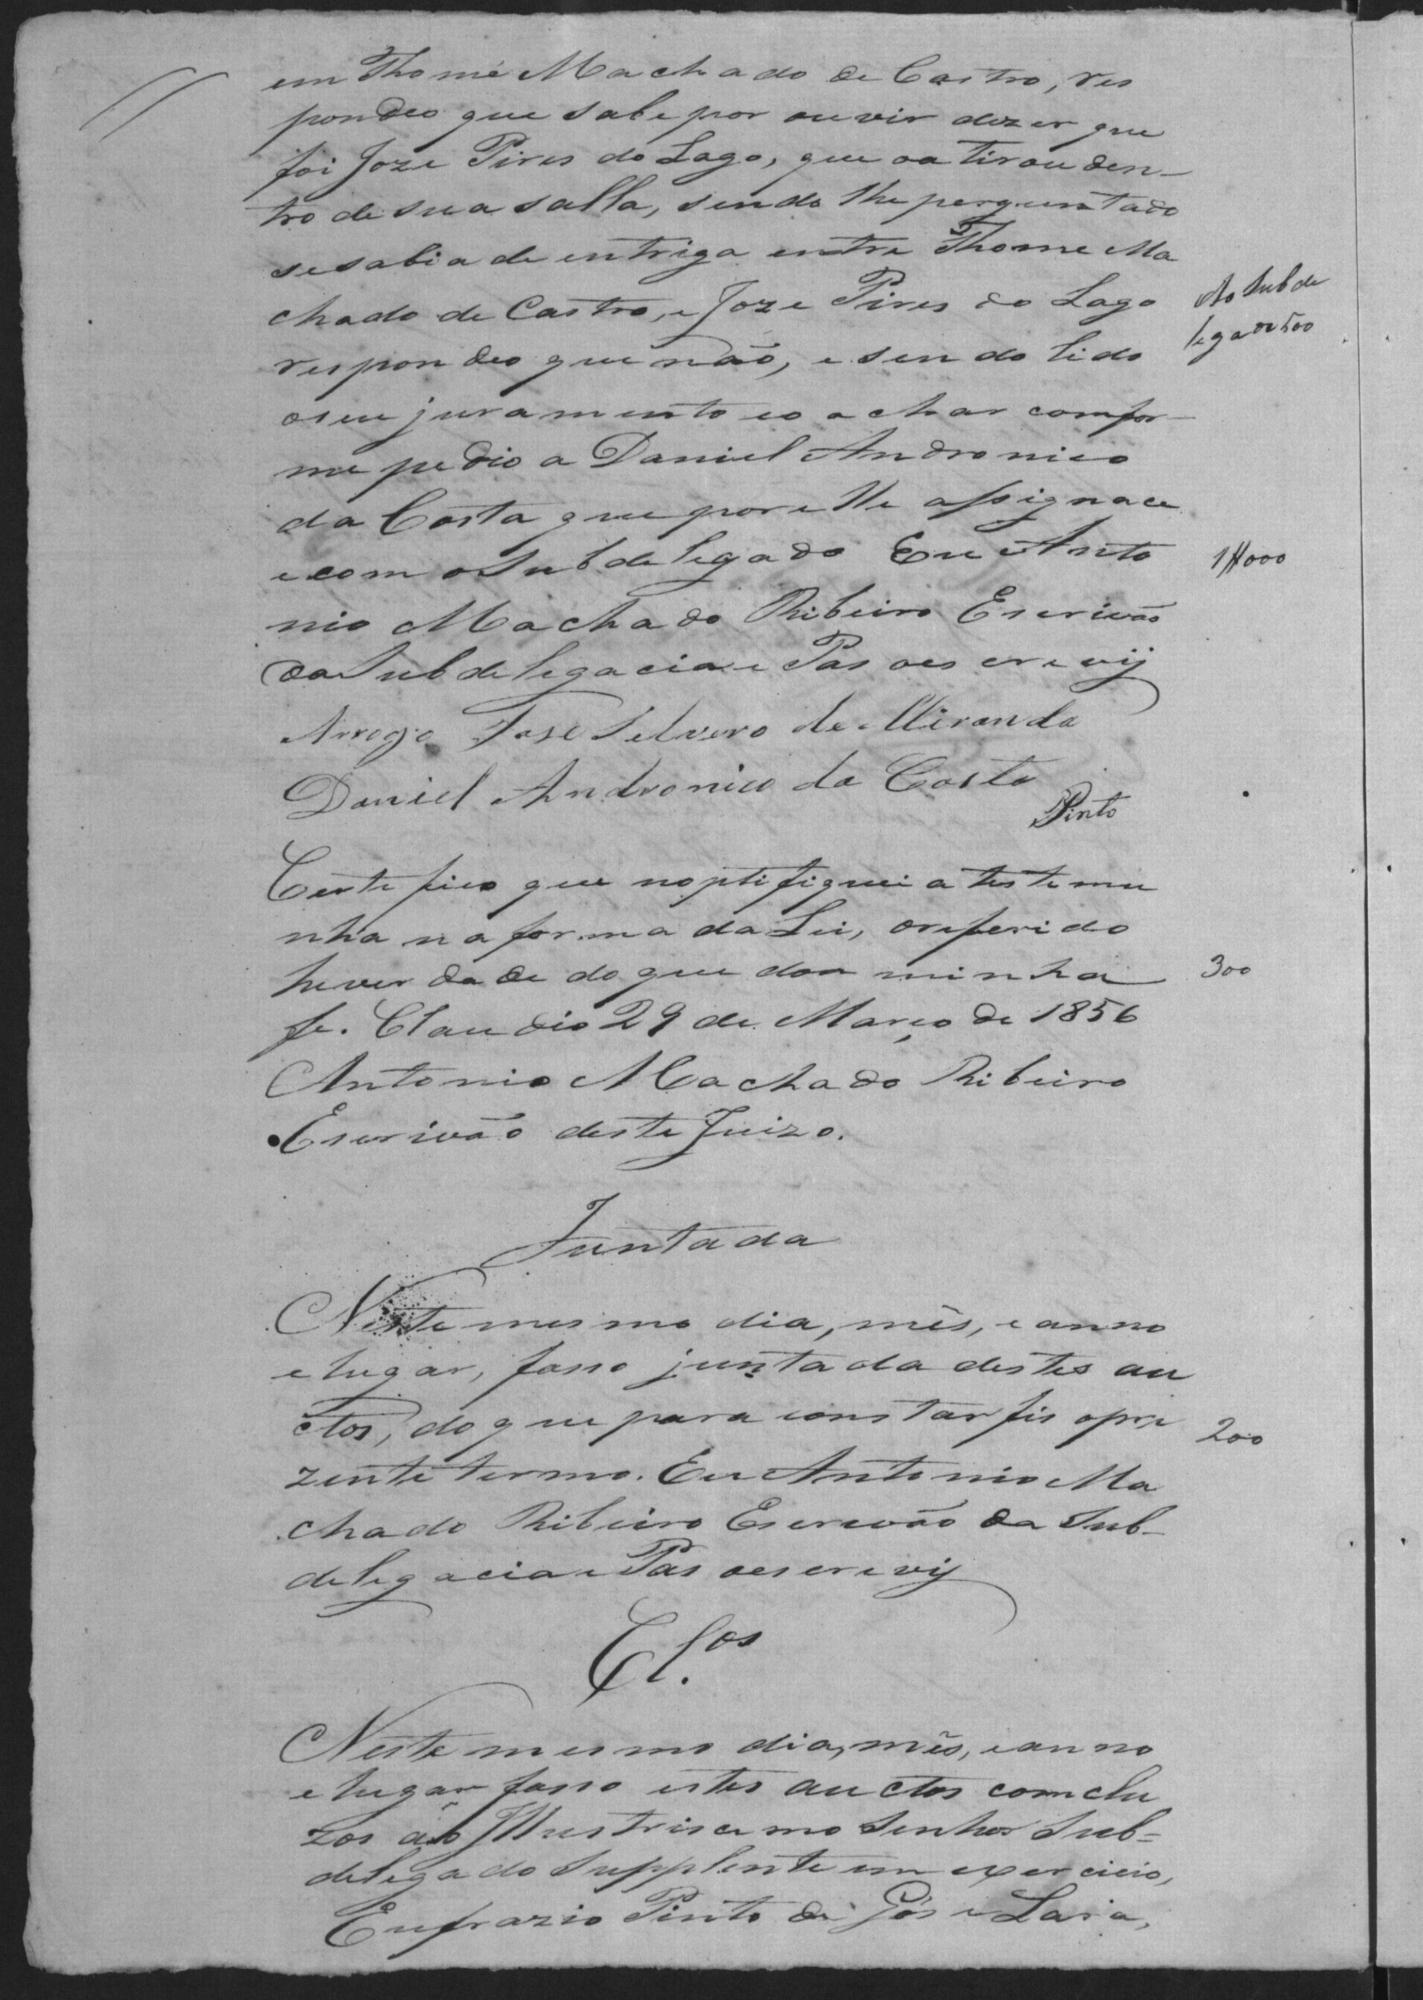 em Thomé Machado de Castro, res
pondeo que sabe por ouvir dizer que
foi Joze Pires do Lago, que oa tirou den-
tro de sua salla, sendo lhe perguntado
se sabia de entriga entre Thome Ma
chado de Castro, e Joze Pires do Lago
respondeo que não, e sendo lido
o seu juramento eo achar comfor-
me pedio a Daniel Andronico
da Costa que por elle assignace
e com o Subdelegado Eu Anto
nio Machado Ribeiro Escrivão
da Subdelegacia e Pas o escrevij
Ao Subde
legado 500
1#000
Arrogo José Silverio de Miranda
Daniel Andronico da Costa
Pinto
Certefico que noptifiquei a testemu
nha na forma da Lei, o referido
he verdade do que dou minha
fe. Claudio 29 de Março de 1856
Antonio Machado Ribeiro
Escrivão deste Juizo.
300
Juntada
Neste mesmo dia, mês, e anno
e lugar, fasso juntada destes au
ctos, do que para constar fis o pre
zente termo. Eu Antonio Ma
chado Ribeiro Escrevão da Sub-
delegacia e Pas o escrevij
200
Cl.os
Neste mesmo dia, mês, e anno
e lugar fasso estes auctos comclu
zos ao Illustrisemo Senhor Sub=
delegado Supplente em exercicio,
Eufrazio Pinto de Gós e Lara,